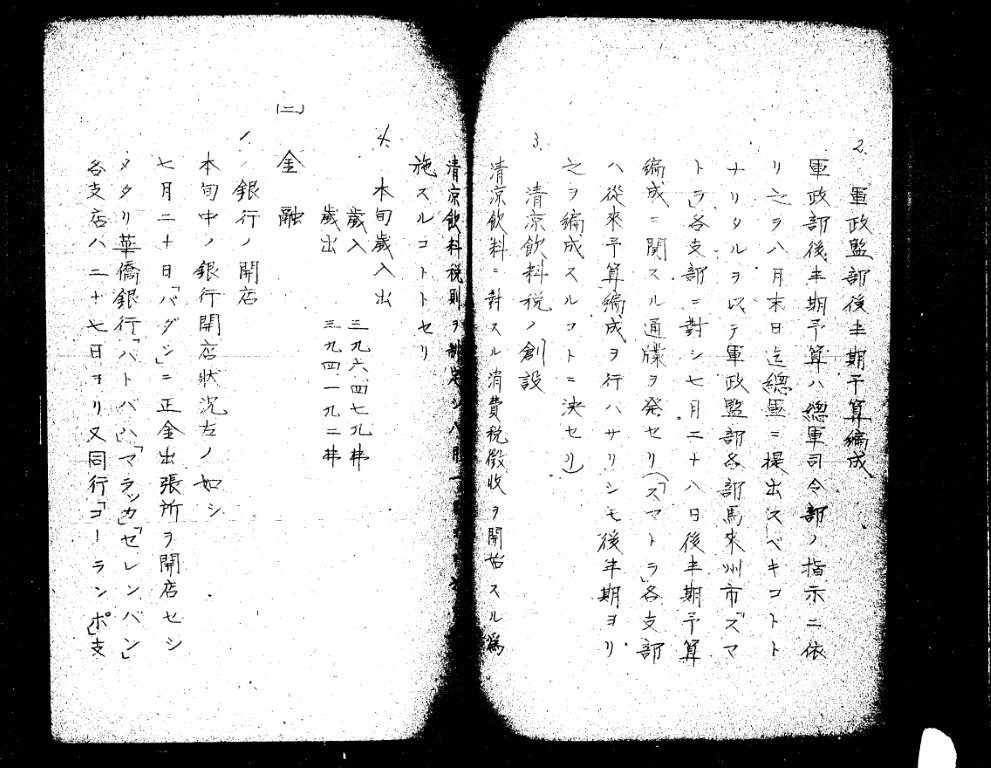 2. 軍政監部後半期予算編成
軍政部後半期予算ハ總軍司令部ノ指示ニ依
リ之ヲ八月末日迄總軍ニ提出スベキコトト
ナリタルヲ以テ軍政監部各部馬來州市「スマ
トラ」各支部ニ對シ七月二十八日後半期予算
編成ニ関スル通牒ヲ発セリ(「スマトラ」各支部
ハ從來予算編成ヲ行ハサリシモ後半期ヨリ
之ヲ編成スルコトニ決セリ)
3. 清涼飲料税ノ創設
清涼飲料ニ對スル消費税徴收ヲ開始スル爲
清涼飲料税則ヲ制定シ八月一日
施スルコトトセリ
4. 本旬歳入出
歳入 三九六、四七九弗
歳出 三九四一九二弗
(二) 金融
1. 銀行ノ開店
本旬中ノ銀行開店狀況左ノ如シ
七月二十日「バダン」ニ正金出張所ヲ開店セシ
メタリ華僑銀行「バトパハ」「マラッカ」「セレンバン」
各支店ハ二十七日ヨリ又同行「コーランポ」支